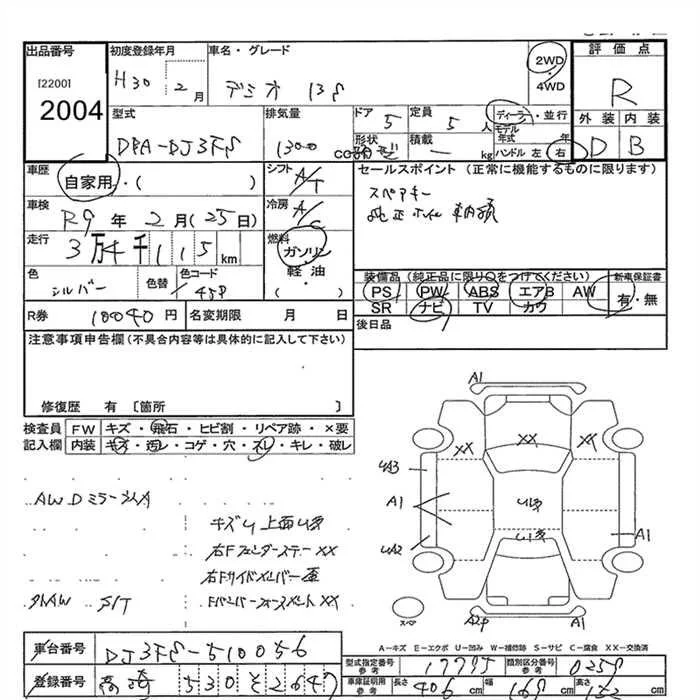 出品番号 初度登録年月 車名・グレード 評価点
[2200] H30 2月 デミオ 13S 2WD・4WD R
2004 型式 排気量 ドア 5 定員 5人 ディーラ・並行 外装 内装
DBA-DJ3FS 1300cc 形状 積載 ― kg モデル年式 年 ハンドル 左 右 D B
車歴 自家用・( ) シフト A/T セールスポイント (正常に機能するものに限ります)
車検 R9年 2月(25日) 冷房 A/C スペアキー
走行 3万4千115km 燃料 ガソリン・軽油・( ) 純正ナビ
色 シルバー 色替 色コード 45P 装備品(純正品に限り〇をつけてください) 新車保証書
PS PW ABS エアB AW 有・無
R券 10040円 名変期限 月 日 SR ナビ TV カワ
注意事項申告欄(不具合内容等は具体的に記入して下さい) 後日品
修復歴 有 〔箇所 〕
検査員 FW キズ・飛石・ヒビ割・リペア跡・×要
記入欄 内装 キズ・汚レ・コゲ・穴・スレ・キレ・破レ
A1
XX XX XX
UA3
A1
UA2
A1
AW Dミラーシルバ
キズ
右Fフェンダーステー XX
右Fサイドメンバー
Fバンパーフォースメント XX
外AW S/T
スペア A2P A1
A-キズ E-エクボ U-凹み W-補修跡 S-サビ C-腐食 XX-交換済
車台番号 DJ3FS-510056
型式指定番号 参考 17795 類別区分番号 参考 0258
登録番号 高崎 530 そ 2647
車庫証明用 参考 長さ 406cm 幅 169 高さ